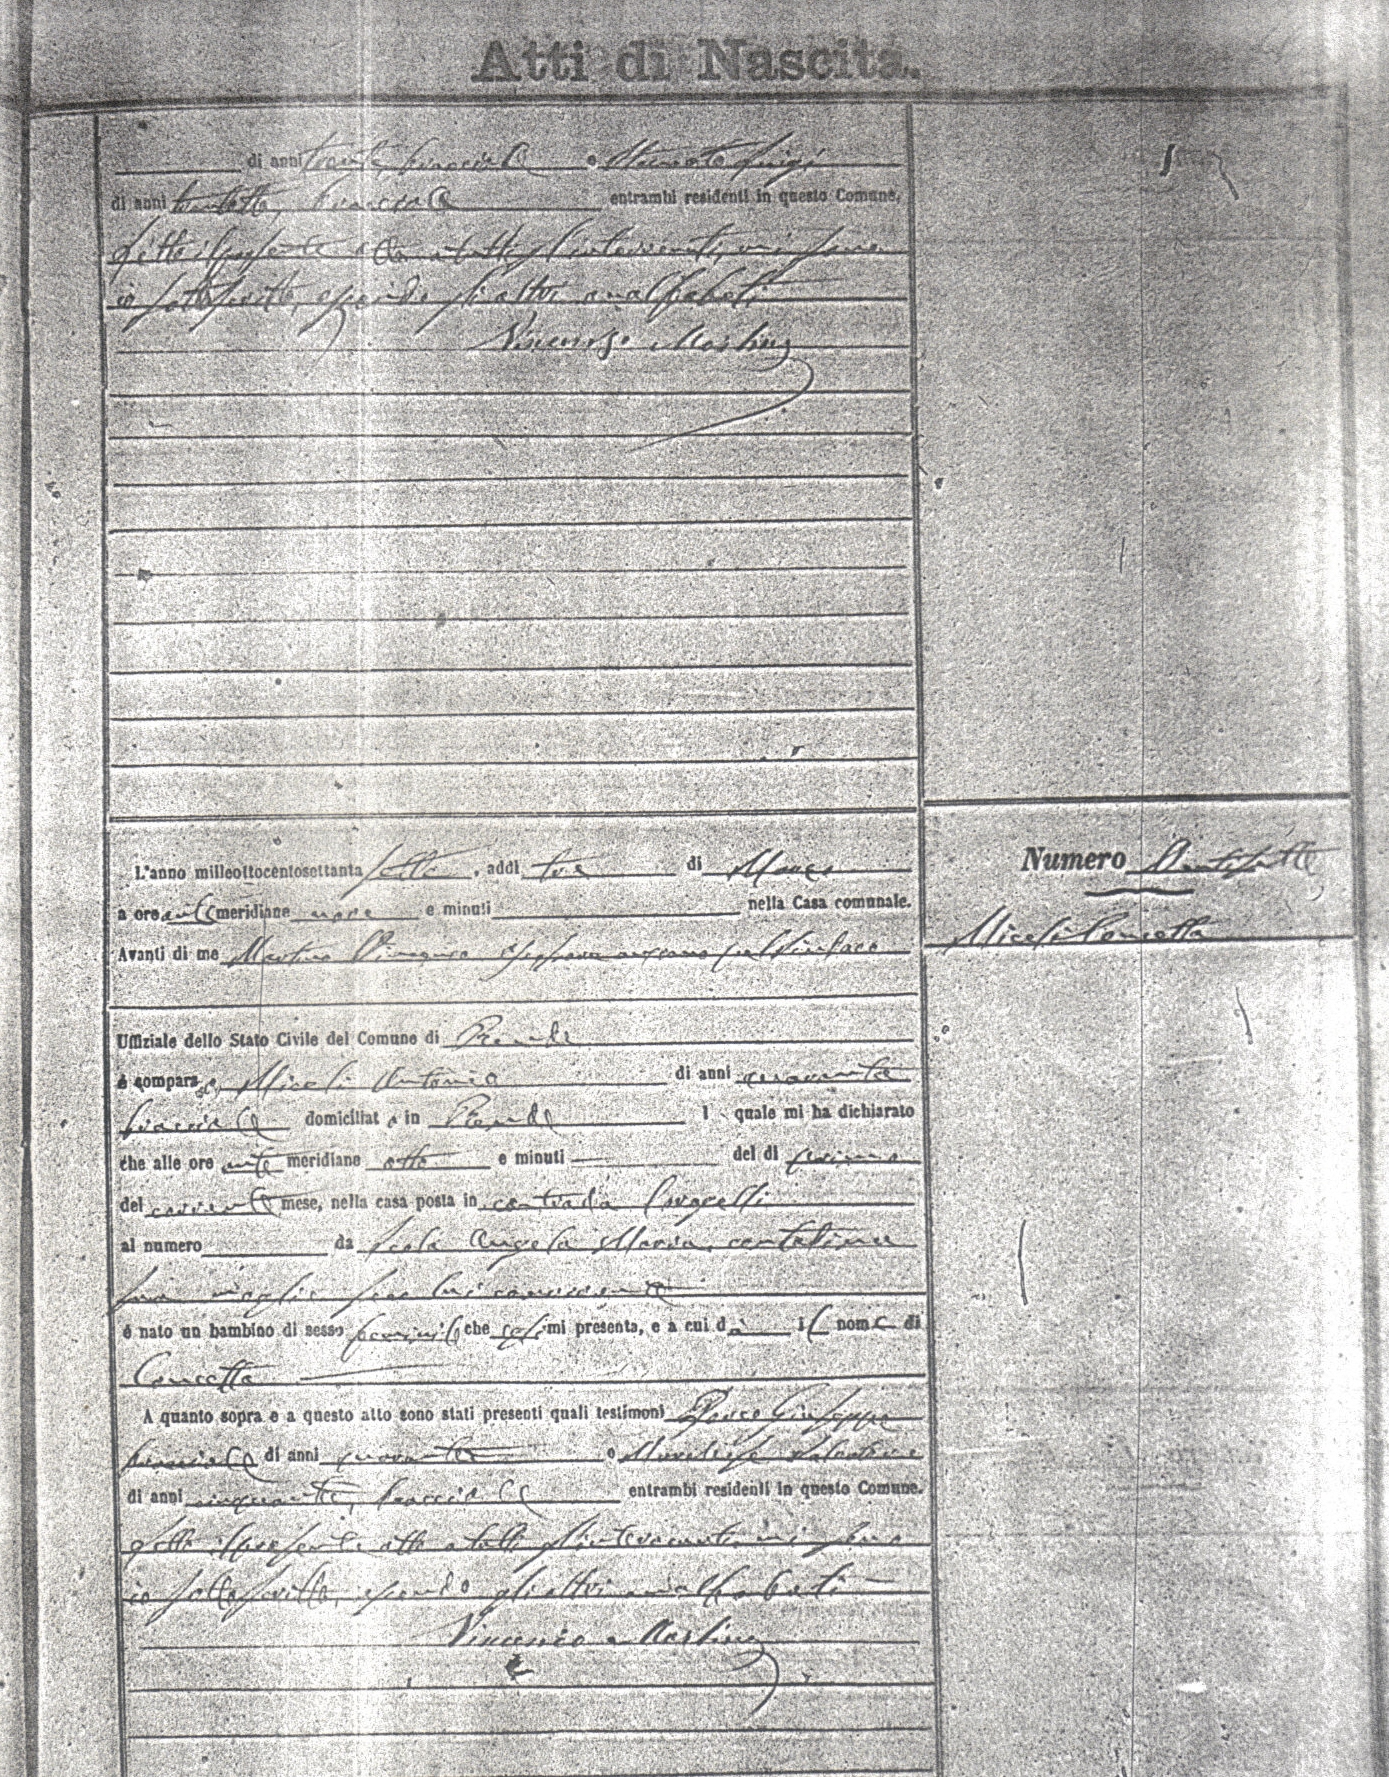 Atti di Nascita.
di anni trenta, bracciale e Luigi
di anni trentotto, bracciale entrambi residenti in questo Comune.
Letto il presente atto a tutti gl'intervenuti, mi sono
io sottoscritto, essendo gli altri analfabeti
Vincenzo Martino
L'anno milleottocentosettanta sette, addì tre di Marzo
a ore ante meridiane nove e minuti nella Casa comunale.
Avanti di me Martino Vincenzo pel Sindaco
Numero Ventisette
Miceli Concetta
Uffiziale dello Stato Civile del Comune di Rende
è comparso, Miceli Antonio di anni quaranta
bracciale domiciliato in Rende l quale mi ha dichiarato
che alle ore ante meridiane otto e minuti del dì primo
del corrente mese, nella casa posta in contrada
al numero da Scola Angela Maria, contadina
sua moglie seco lui convivente
è nato un bambino di sesso feminile che egli mi presenta, e a cui dà il nome di
Concetta
A quanto sopra e a questo atto sono stati presenti quali testimoni Giuseppe
bracciale di anni quaranta e Salvatore
di anni cinquanta, bracciale entrambi residenti in questo Comune.
Letto il presente atto a tutti gl'intervenuti, mi sono
io sottoscritto, essendo gli altri analfabeti
Vincenzo Martino